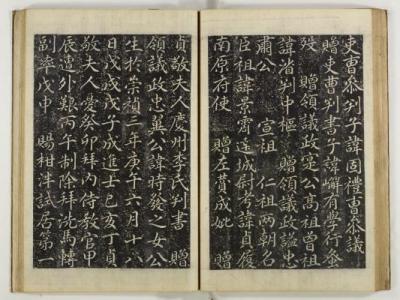 吏曹參判子諱固禮曹參議
贈吏曹判書子諱㠎有學行蚤
歿 贈領議政寔公高祖曾祖
諱渻判中樞 贈領議政諡忠
肅公 宣祖 仁祖兩朝名
臣祖諱景霄達城尉考諱貞履
南原府使 贈左贊成妣 贈
貞敬夫人慶州李氏判書 贈
領議政忠翼公諱時發之女公
生於崇禎三年庚午六月十六
日戊戌戊子成進士己亥丁貞
敬夫人憂癸卯拜內侍教官甲
辰遭外艱丙午制除拜洗馬轉
副率戊申 賜柑泮試居第一